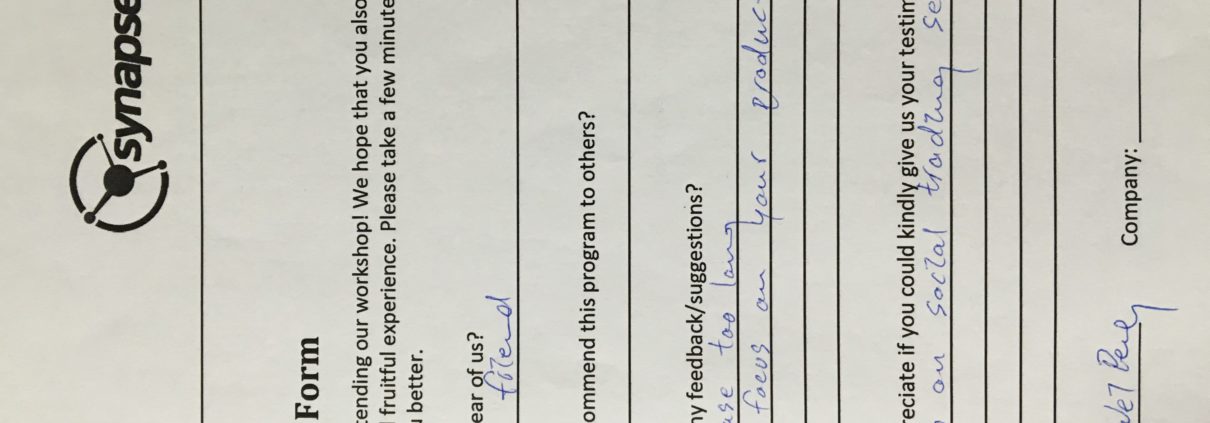 synapse
Form
tending our workshop! We hope that you also
fruitful experience. Please take a few minute
better.
ear of us?
friend
ommend this program to others?
ny feedback/suggestions?
too long
focus on your produc
reciate if you could kindly give us your testim
on social trading se
Company: